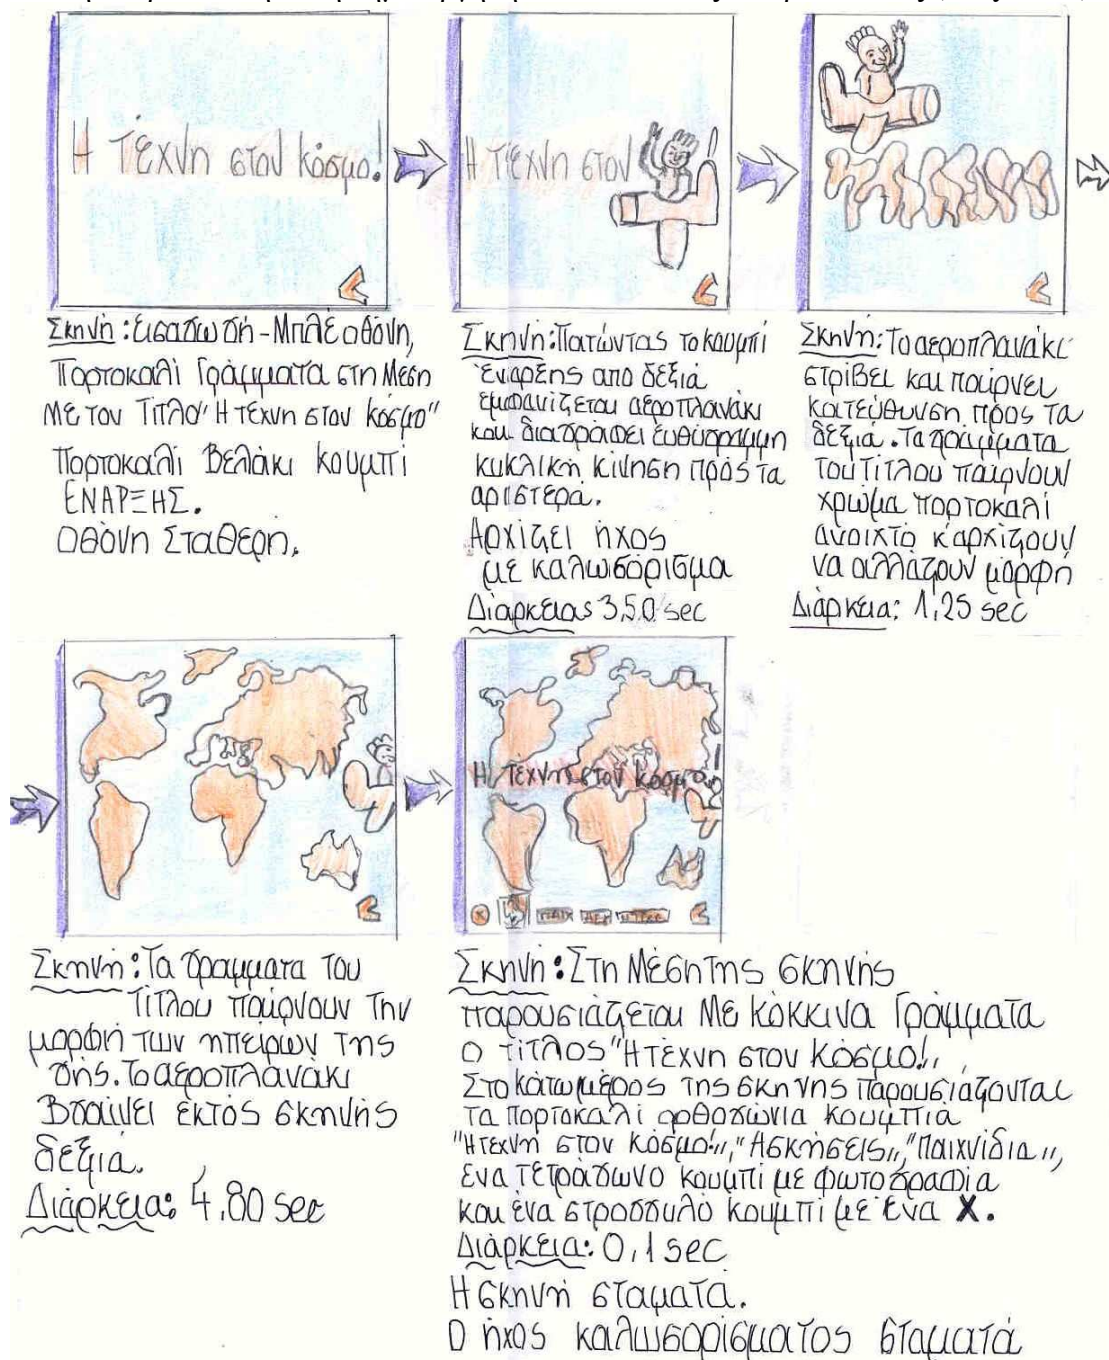 Η τέχνη στον κόσμο!
Η τέχνη στον
Σκηνή: Εισαγωγή - Μπλέ οθόνη,
Πορτοκαλί Γράμματα στη Μέση
Με τον Τίτλο "Η τέχνη στον κόσμο"
Πορτοκαλί Βελάκι κουμπί
ΕΝΑΡΞΗΣ.
Οθόνη Σταθερή.
Σκηνή: Πατώντας το κουμπί
έναρξης από δεξιά
εμφανίζεται αεροπλανάκι
και διαγράφει ευθύγραμμη
κυκλική κίνηση προς τα
αριστερά.
Αρχίζει ήχος
με καλωσόρισμα
Διάρκειας 3,50 sec
Σκηνή: Το αεροπλανάκι
στρίβει και παίρνει
κατεύθυνση προς τα
δεξιά. Τα γράμματα
του Τίτλου παίρνουν
χρώμα πορτοκαλί
ανοιχτό κ' αρχίζουν
να αλλάζουν μορφή
Διάρκεια: 1,25 sec
Η τέχνη στον κόσμο!
Χ ΠΑΙΧ ΑΣΚ
Σκηνή: Τα γραμματα του
Τίτλου παίρνουν την
μορφή των ηπείρων της
γής. Το αεροπλανάκι
Βγαίνει εκτός σκηνής
δεξιά.
Διάρκεια: 4,80 sec
Σκηνή: Στη Μέση της σκηνής
παρουσιάζεται Με κόκκινα Γράμματα
ο τίτλος "Η τέχνη στον κόσμο!"
Στο κάτω μέρος της σκηνης παρουσιάζονται
τα πορτοκαλί ορθογώνια κουμπιά
"Η τέχνη στον κόσμο!", "Ασκήσεις", "Παιχνίδια",
ένα τετράγωνο κουμπί με φωτογραφία
και ένα στρογγυλό κουμπί με ένα Χ.
Διάρκεια: 0,1 sec
Η σκηνή σταματά.
Ο ήχος καλωσορίσματος σταματά